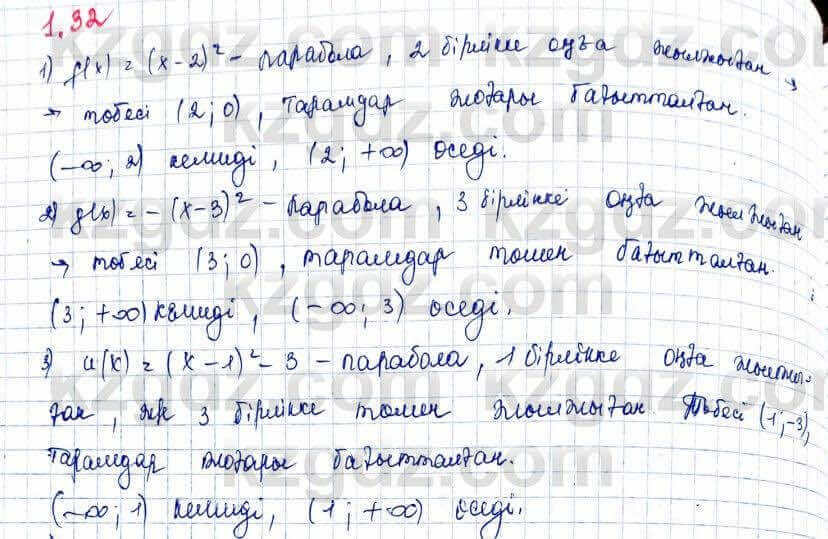 1.32
1) f(x) = (x-2)² - парабола, 2 бірлікке оңға жылжыған,
→ төбесі (2;0), тарамдар жоғары бағытталған.
(-∞; 2) кемиді, (2; +∞) өседі.
2) g(x) = -(x-3)² - парабола, 3 бірлікке оңға жылжыған
→ төбесі (3;0), тарамдар томен бағытталған.
(3; +∞) кемиді, (-∞; 3) өседі.
3) u(x) = (x-1)² - 3 - парабола, 1 бірлікке оңға жылжы-
ған, және 3 бірлікке томен жылжыған. Төбесі (1;-3),
Тарамдар жоғары бағытталған.
(-∞; 1) кемиді, (1; +∞) өседі.
kzgdz.com